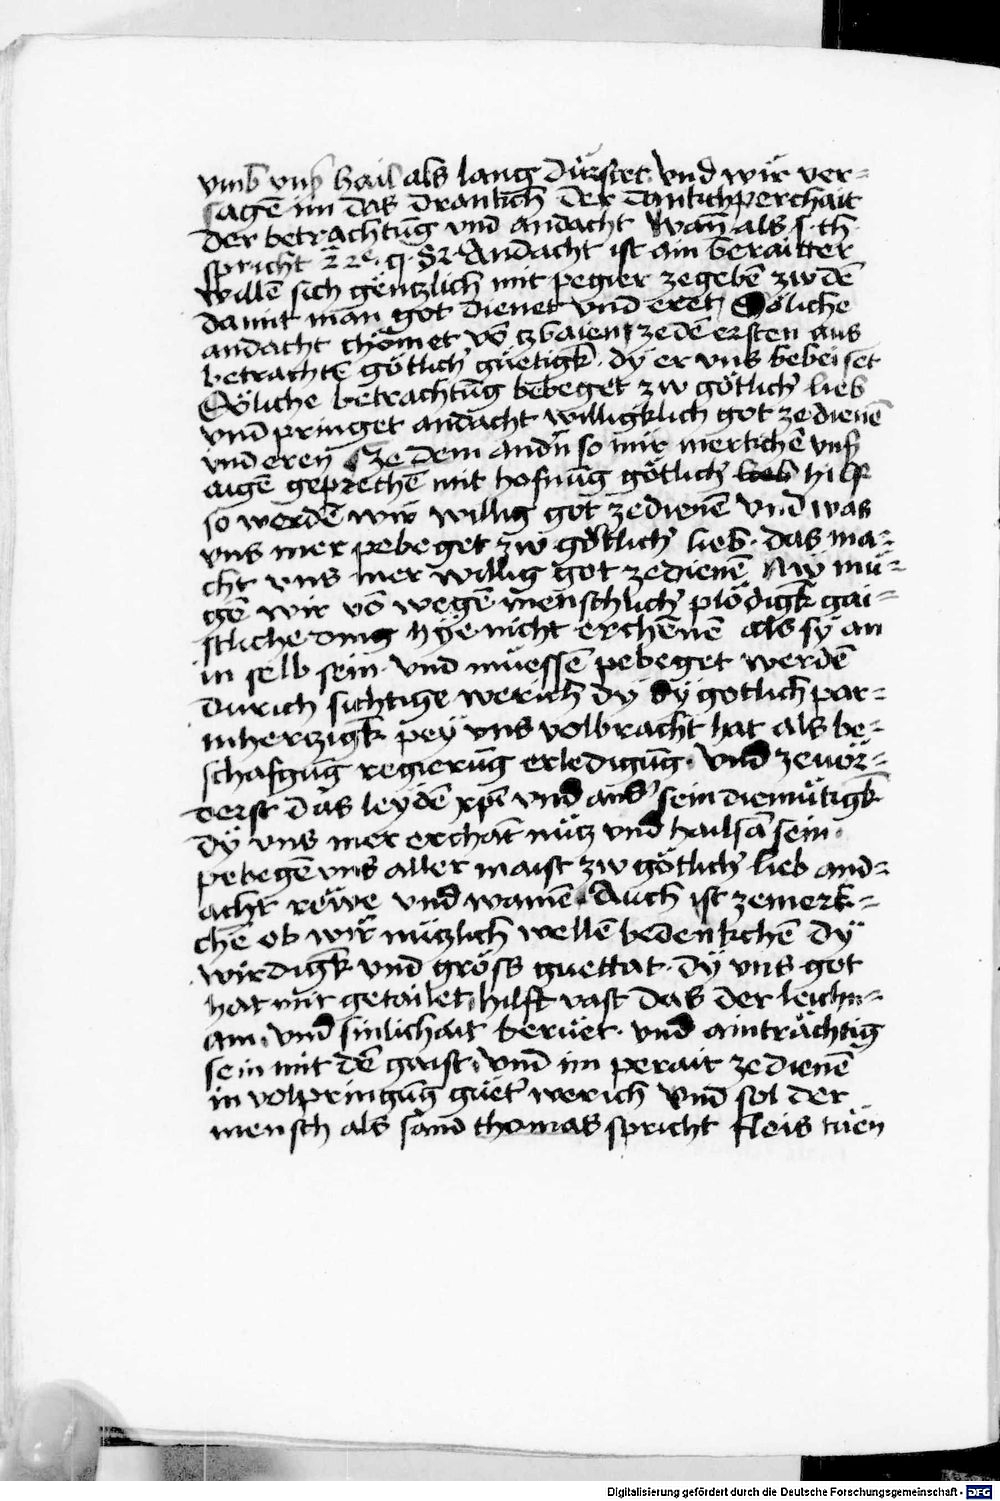 vmb vnſ hail als lang dürstet vnd wir ver=
sagē im das dranckh der danckchperchait
der betrachtūg vnd andacht wan̄ als s. th.
spricht 2 2e. q. 82. Andacht ist ain beraitter
willē sich gēntzlich mit pegier zegebē zw dē
damit man got dienet vnd eret Söliche
andacht chömet vō tzbaien zedē ersten aus
betrachtē götlicħ güetigk. dy er vns bebeiset
Söliche betrachtūg bebeget zw götlicħ lieb
vnd pringet andacht willigklich got zedienē
vnd eren Ze dem andn̄ so wir merkchē vnſ
aigē geprechē mit hofnūg götlicħ hilf
so werdē wir willig got zedienē vnd was
vns mer pebeget zw götlicħ lieb. das ma=
cht vns mer willig got zedienē Nw mü=
gē wir vō wegē menschlicħ plödigk gai=
stliche ding hÿe nicht erchēnē als sÿ an
in selb sein. vnd müessē pebeget werdē
durich sichtige werich dÿ dÿ gotlich par=
mherzigk peÿ vns volbracht hat als be=
schafgūg regierūg erledigūg. vnd zeuör=
derst das leydē xpī vnd ands' sein diemütigk
dÿ vns mer erchāt nütz vnd hailsā sein.
pebegē vns aller maist zw götlicħ lieb and=
acht rewe vnd wainē. Auch ist zemerk=
chē ob wir nützlich wellē bedenkchē dÿ
wirdigk vnd gröss guettat. dÿ vns got
hat mit getailet hilft vast das der leichn=
am. vnd sinlichait beruet. vnd ainträchtig
sein mit dē gaist. vnd im perait zedienē
in volpringūg güet' werich vnd sol der
mensch als sand thomas spricht fleis tüen
Digitalisierung gefördert durch die Deutsche Forschungsgemeinschaft - DFG